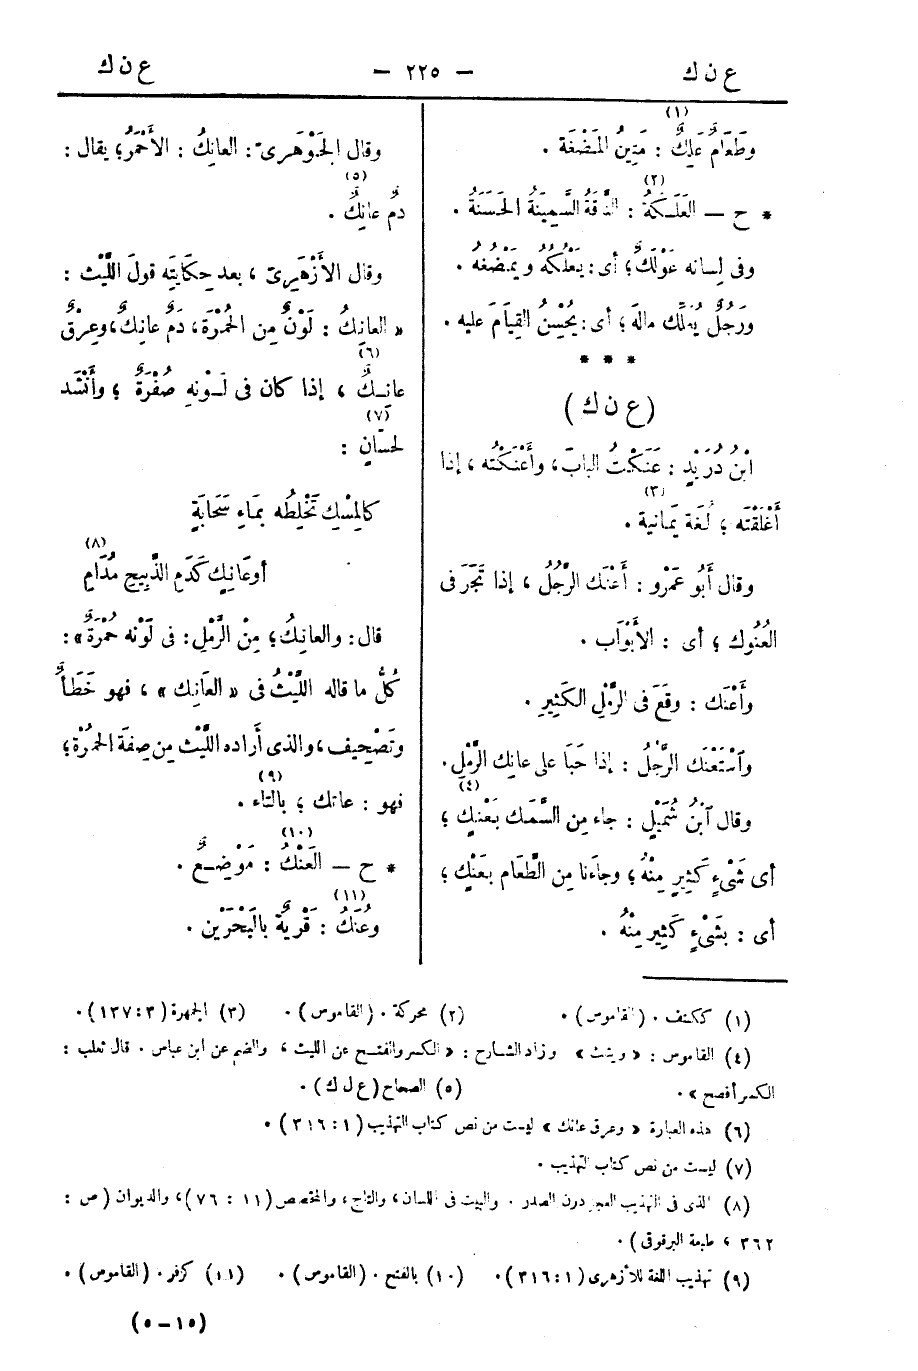 ع ن ك
— ٢٢٥ —
ع ن ك
(١)
وطَعَامٌ عَلِكٌ : مَتِينُ المَمْضَغَة .
(٢)
* ح — العَلَكَةُ : النَّاقَةُ السَّمِينَةُ الحَسَنَةُ .
وفى لِسانه عَوْلَكٌ؛ أى: يَعْلُكُه ويَمْضُغُه .
ورَجُلٌ يُعَلِّك مالَه ؛ أى: يُحْسِنُ القِيَامَ عليه .
* * *
( ع ن ك )
ابْنُ دُرَيْدٍ : عَنَكْتُ البابَ، وأَعْنَكْتُه ، إذا
(٣)
أَغْلَقْتَه ؛ لُغَة يَمانية .
وقال أَبُو عَمْرو : أَعْنَك الرَّجُلُ ، إذا تَجَرَ فى
العُنُوك ؛ أى : الأَبْوَاب .
وأَعْنَك : وقَعَ فى الرَّمْلِ الكَثِيرِ .
وٱسْتَعْنَك الرَّجُلُ : إذا حَبَا على عانِك الرَّمْلِ.
(٤)
وقال ٱبْنُ شُمَيْلٍ : جاء مِن السَّمَك بَعْنِكٍ ؛
أى شَىْءٍ كَثِيرٍ مِنْهُ ؛ وجاءَنا مِن الطَّعَام بعَنْكٍ ؛
أى : بشَىْءٍ كَثِيرٍ مِنْهُ .
وقال الجَوْهَرِىّ : العانِكُ : الأَحْمَرُ؛ يقال :
(٥)
دمٌ عانِكٌ .
وقال الأَزْهَرِىّ ، بعد حِكَايَتِه قولَ اللَّيْث :
« العانِكُ : لَوْنٌ مِن الحُمْرَة، دَمٌ عانِكٌ، وعِرْقٌ
(٦)
عانِكٌ ، إذا كان فى لَوْنِه صُفْرَةٌ ؛ وأَنْشَد
(٧)
لحسّانٍ :
كالمِسْكِ تَخْلِطُه بمَاءِ سَحَابَةٍ
(٨)
أوعَانِكٍ كَدَمِ الذَّبِيحِ مُدَامِ
قال : والعانِكُ؛ مِنْ الرَّمْلِ: فى لَوْنه حُمْرَةٌ» :
كُلُّ ما قاله اللَّيْثُ فى « العَانِك » ، فهو خَطَأٌ
وتَصْحِيف، والذى أَراده اللَّيْث مِن صِفَة الحُمْرَة؛
(٩)
فهو : عاتك ؛ بالتاء .
(١٠)
* ح — العَنْكُ : مَوْضِعٌ .
(١١)
وعُنَكُ : قَرْيَةٌ بالبَحْرَيْن .
(١) ككتف . (القاموس) . (٢) محركة . (القاموس) . (٣) الجمهرة (٣ : ١٣٧) .
(٤) القاموس : « ويثلث » وزاد الشارح : « الكسر والفتح عن الليث ، والضم عن ابن عباس . قال ثعلب :
الكسر أفصح » . (٥) الصحاح (ع ل ك) .
(٦) هذه العبارة « وعرق عانك » ليست من نص كتاب التهذيب (١ : ٣١٦) .
(٧) ليست من نص كتاب التهذيب .
(٨) الذى فى التهذيب العجز دون الصدر . والبيت فى اللسان ، والتاج ، والمخصص (١١ : ٧٦) ، والديوان (ص :
٣٦٢ ، طبعة البرقوقى) .
(٩) تهذيب اللغة للأزهرى (١ : ٣١٦) . (١٠) بالفتح . (القاموس) . (١١) كزفر . (القاموس) .
(١٥ — ٥)